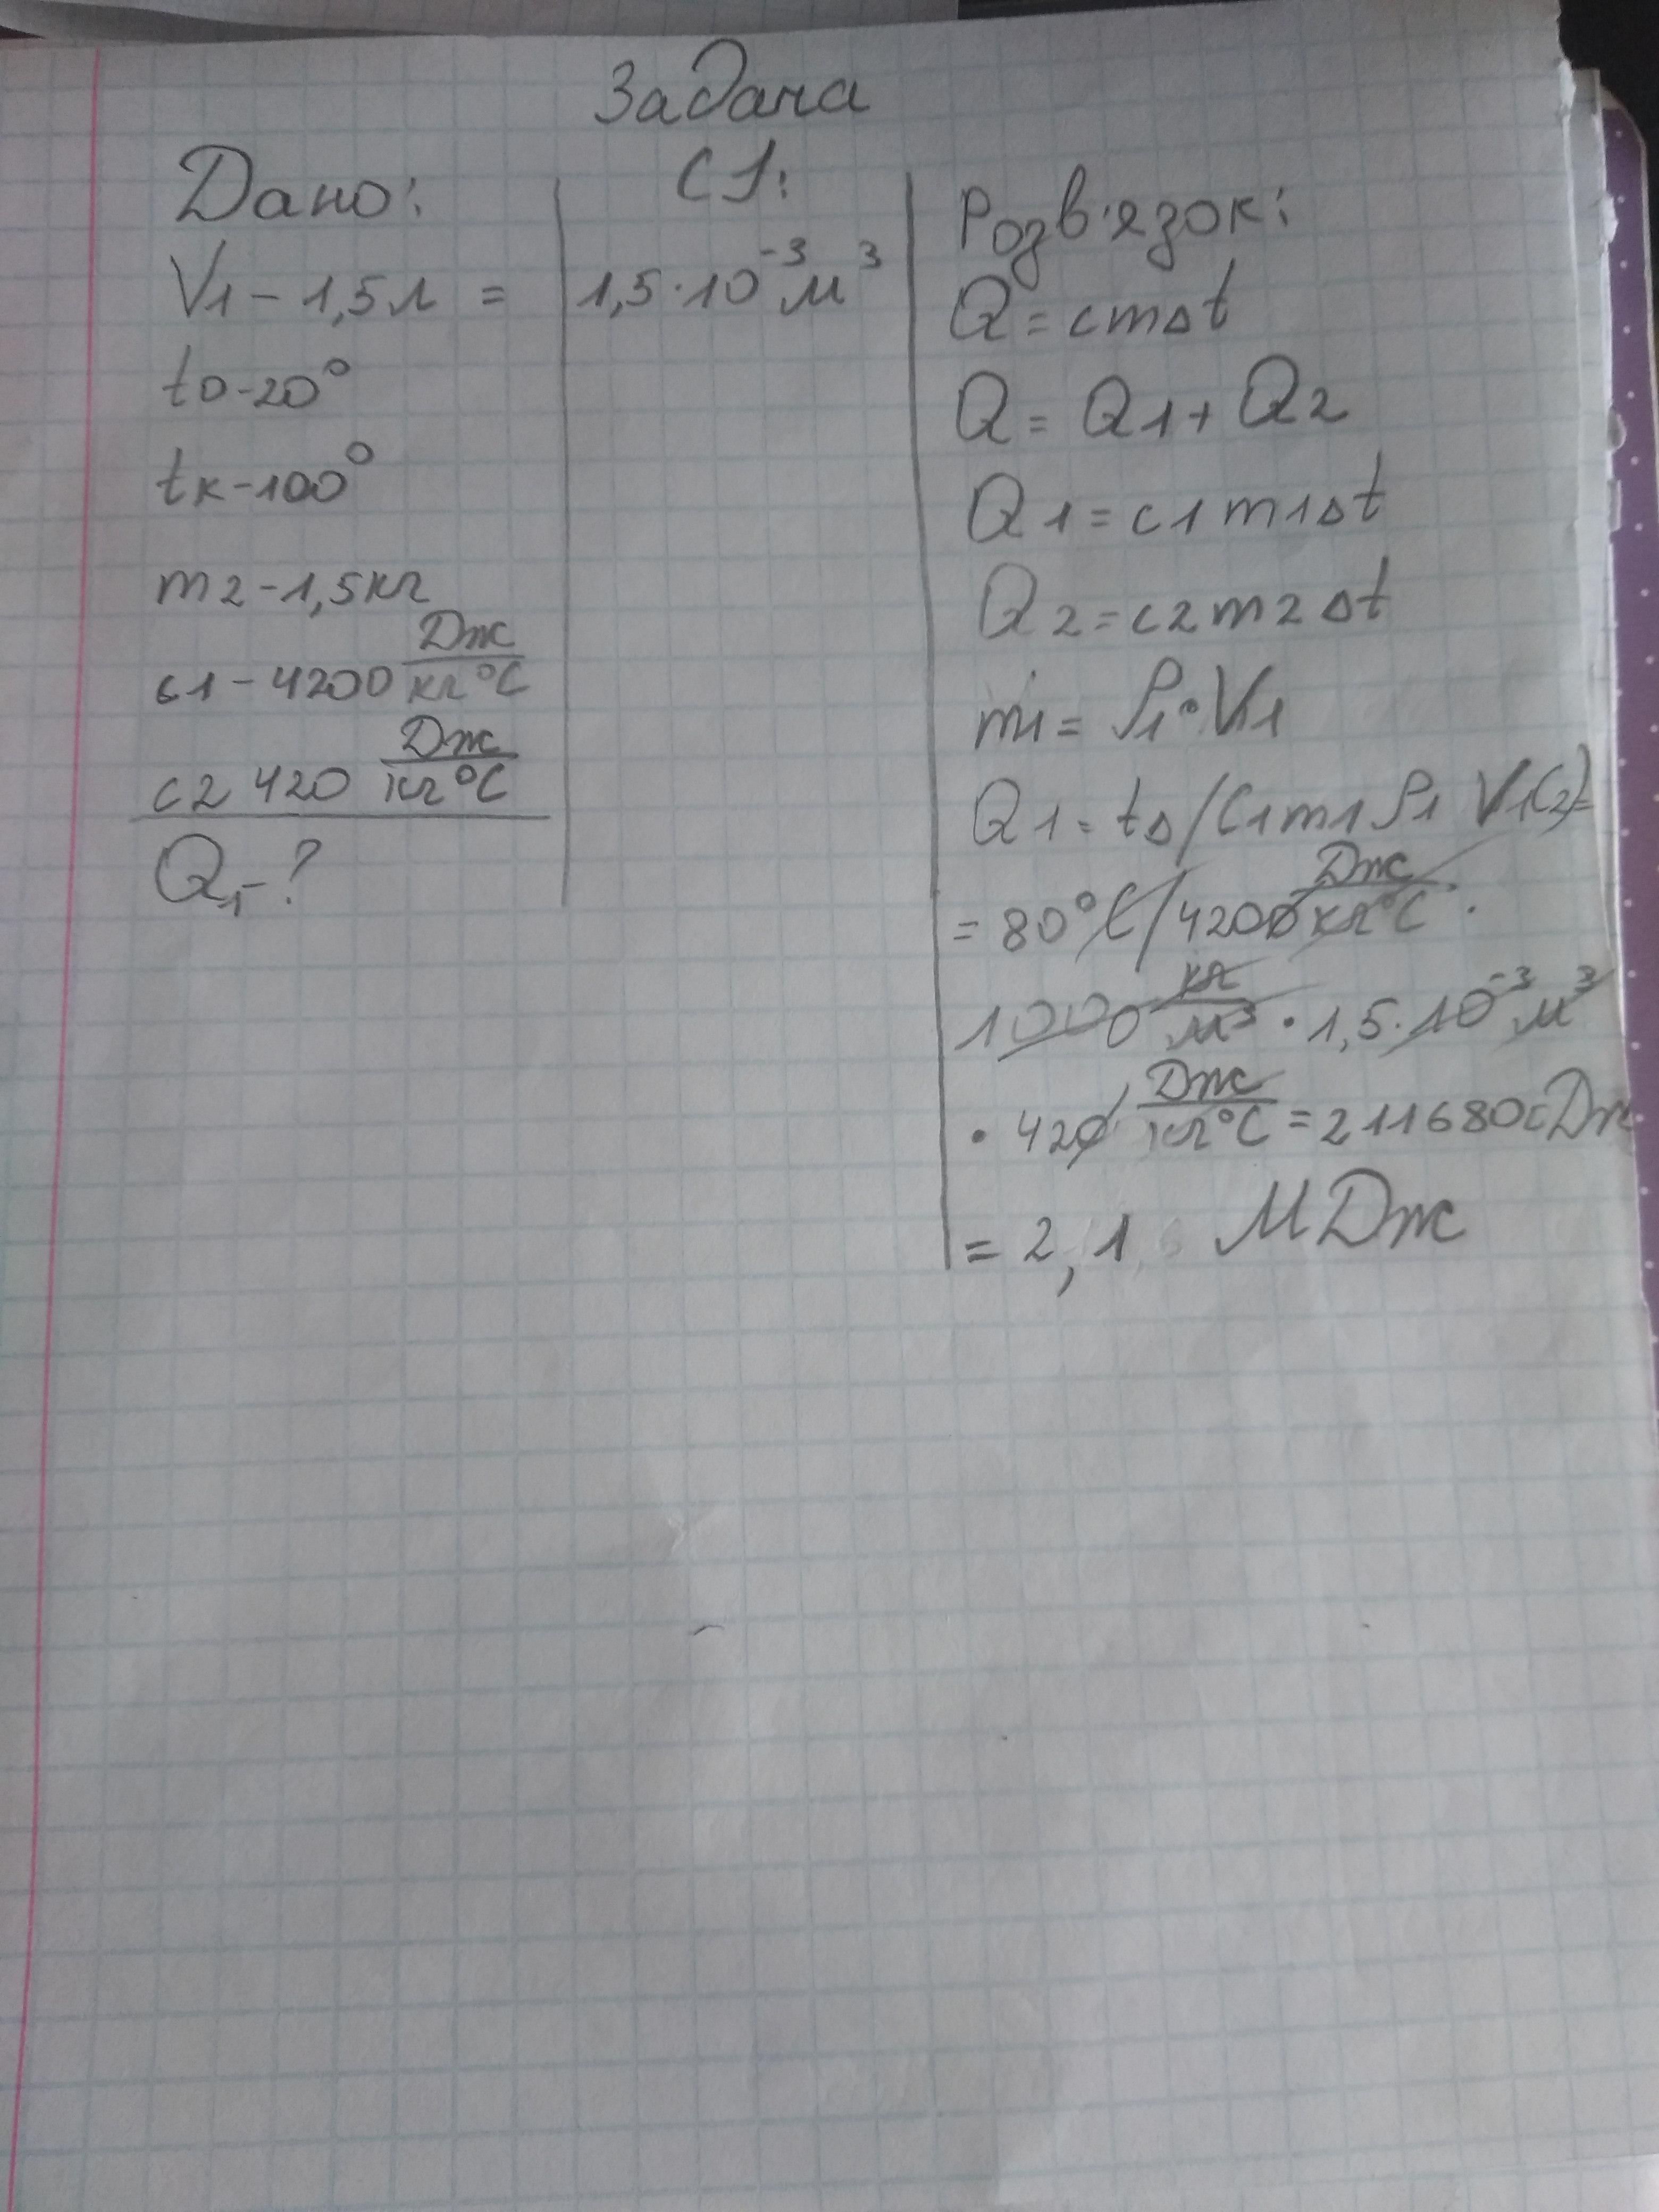 Задача
Дано:
V1 - 1,5л =
t0 - 20°
tк - 100°
m2 - 1,5кг
c1 - 4200 Дж/кг°C
c2 420 Дж/кг°C
Q1 - ?
СІ:
1,5·10⁻³м³
Розв'язок:
Q = cm∆t
Q = Q1 + Q2
Q1 = c1m1∆t
Q2 = c2m2∆t
m1 = ρ1·V1
Q1 = t∆/(C1m1ρ1 V1C2)=
= 80°C/(4200 Дж/кг°C ·
1000 кг/м³ · 1,5·10⁻³м³
· 420 Дж/кг°C = 2116800Дж
= 2,1 МДж